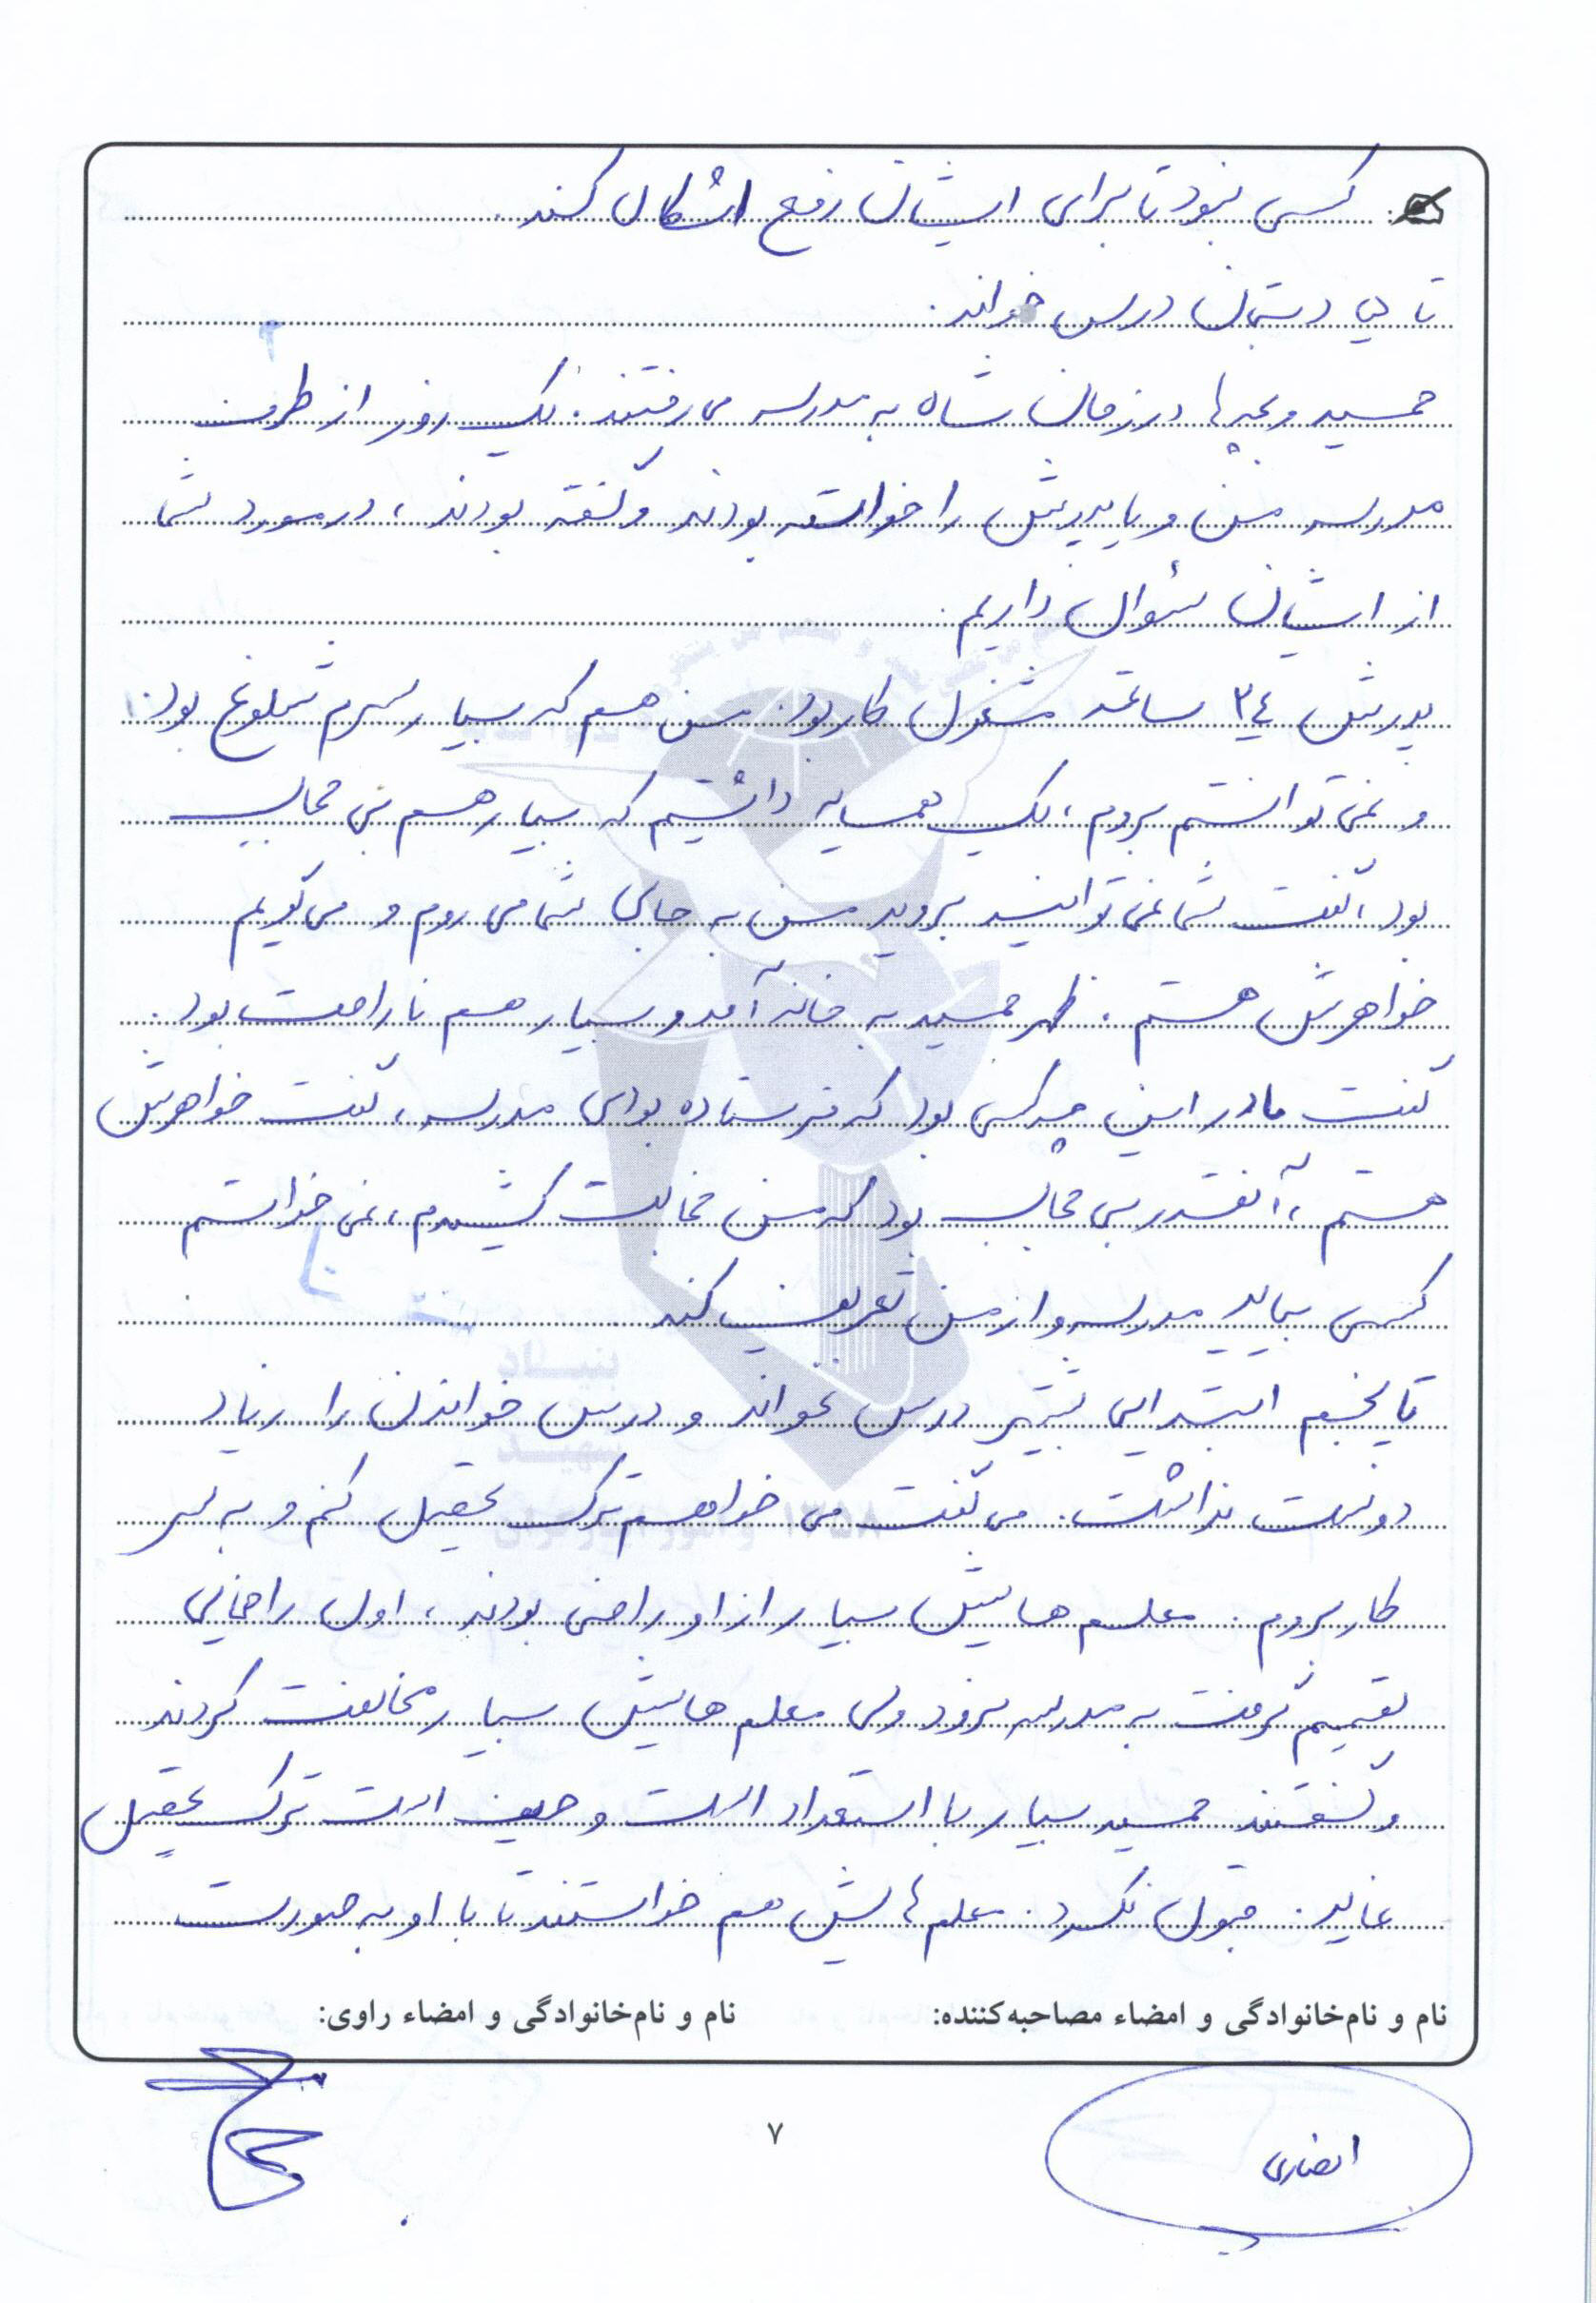 کسی نبود تا برای ایشان رفع اشکال کند.
تا دبستان درس خواند.
حمید و بچه‌ها در زمان شاه به مدرسه می رفتند. یک روز از طرف
مدرسه من و یا پدرش را خواسته بودند و گفته بودند، در مورد شما
از ایشان سئوال داریم.
پدرش ۲۴ ساعته مشغول کار بود. من هم که بسیار سرم شلوغ بود.
و نمی توانستم بروم، یک همسایه داشتیم که بسیار هم بی حجاب
بود، گفت شما نمی توانید بروید من به جای شما می روم و می گویم
خواهرش هستم. ظهر حمید به خانه آمد و بسیار هم ناراحت بود.
گفت مادر این چه کسی بود که فرستاده بودی مدرسه، گفت خواهرش
هستم، آنقدر بی حجاب بود که من خجالت کشیدم، نمی خواستم
کسی بیاید مدرسه و از من تعریف کند.
تا پنجم ابتدایی بیشتر درس نخواند و درس خواندن را زیاد
دوست نداشت. می گفت می خواهم ترک تحصیل کنم و به سر
کار بروم. معلم هایش بسیار از او راضی بودند، اول راهنمایی
تصمیم گرفت به مدرسه نرود ولی معلم هایش بسیار مخالفت کردند
و گفتند حمید بسیار با استعداد است و حیف است ترک تحصیل
نماید. قبول نکرد. معلم هایش هم خواستند تا با او به صورت
نام و نام‌خانوادگی و امضاء مصاحبه‌کننده: نام و نام‌خانوادگی و امضاء راوی:
انصاری
۷
بنیاد
شهید
۱۳۵۸